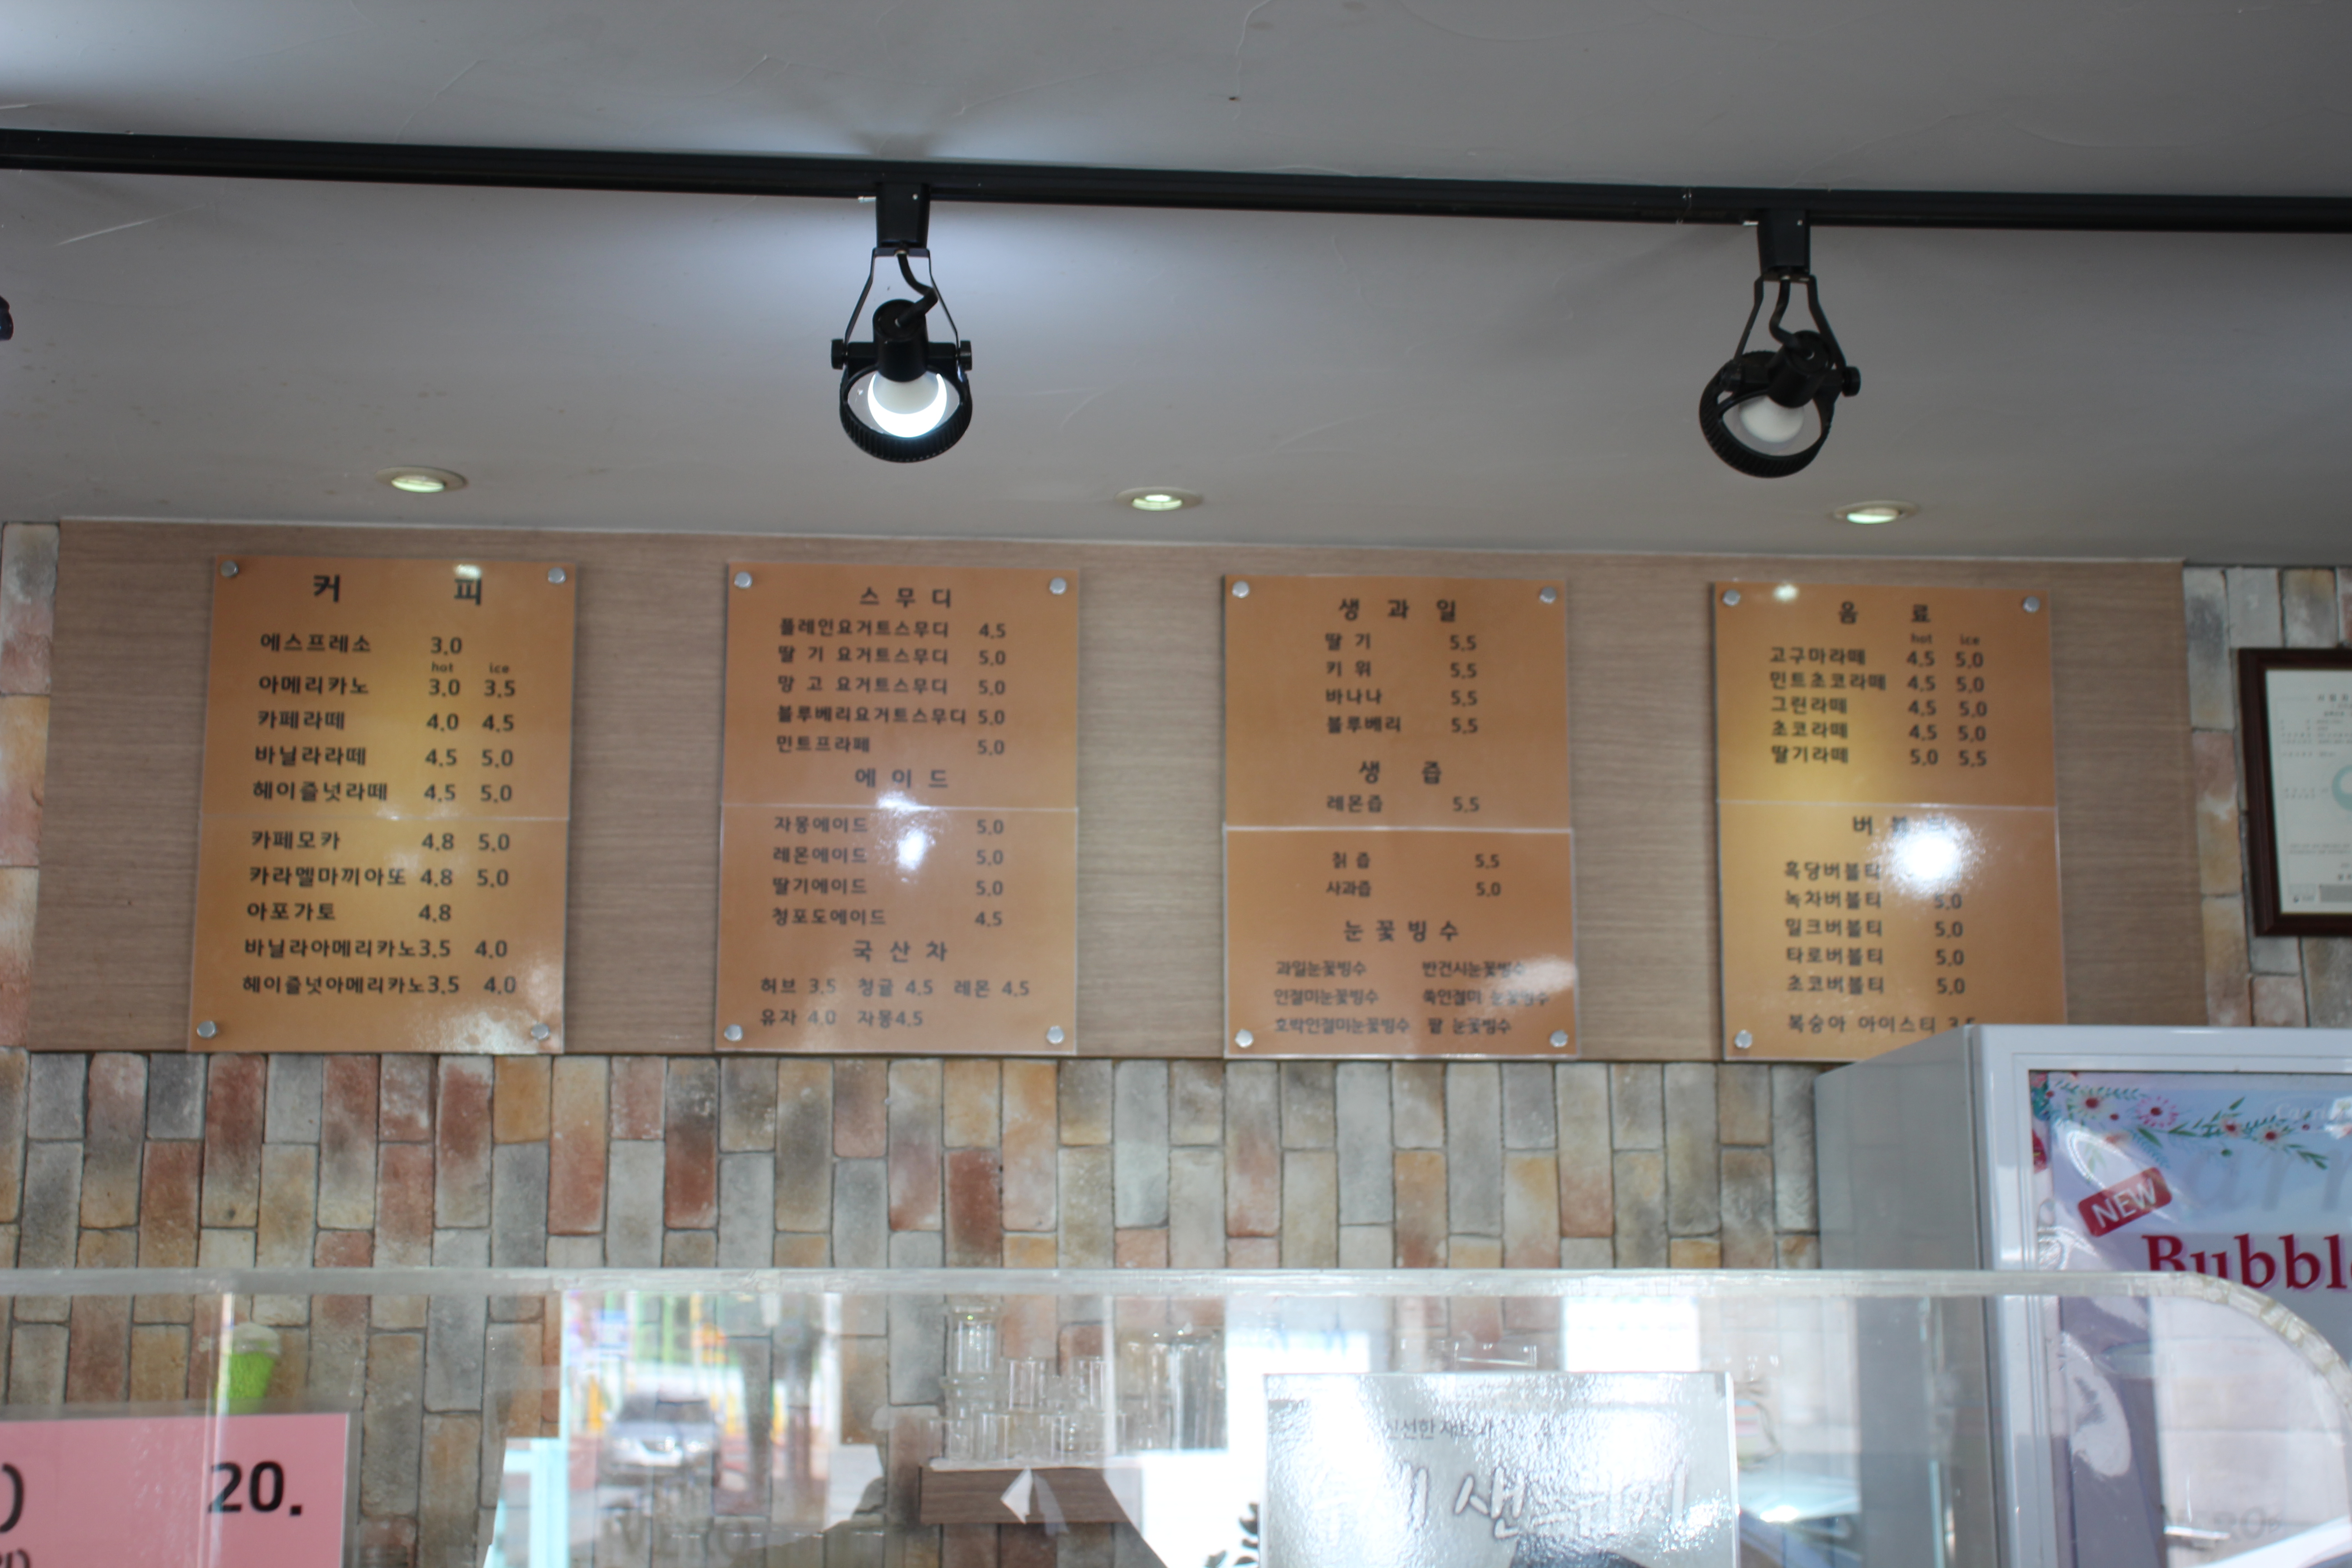 커 피
에스프레소 3.0
hot ice
아메리카노 3.0 3.5
카페라떼 4.0 4.5
바닐라라떼 4.5 5.0
헤이즐넛라떼 4.5 5.0
카페모카 4.8 5.0
카라멜마끼아또 4.8 5.0
아포가토 4.8
바닐라아메리카노3.5 4.0
헤이즐넛아메리카노3.5 4.0
스 무 디
플레인요거트스무디 4.5
딸 기 요거트스무디 5.0
망 고 요거트스무디 5.0
블루베리요거트스무디 5.0
민트프라페 5.0
에 이 드
자몽에이드 5.0
레몬에이드 5.0
딸기에이드 5.0
청포도에이드 4.5
국 산 차
허브 3.5 청귤 4.5 레몬 4.5
유자 4.0 자몽4.5
생 과 일
딸 기 5.5
키 위 5.5
바나나 5.5
블루베리 5.5
생 즙
레몬즙 5.5
칡 즙 5.5
사과즙 5.0
눈 꽃 빙 수
과일눈꽃빙수 반건시눈꽃빙수
인절미눈꽃빙수 쑥인절미 눈꽃빙수
호락인절미눈꽃빙수 팥 눈꽃빙수
음 료
hot ice
고구마라떼 4.5 5.0
민트초코라떼 4.5 5.0
그린라떼 4.5 5.0
초코라떼 4.5 5.0
딸기라떼 5.0 5.5
버
흑당버블티
녹차버블티 5.0
밀크버블티 5.0
타로버블티 5.0
초코버블티 5.0
복숭아 아이스티 3.5
NEW
Bubble
20.
신선한